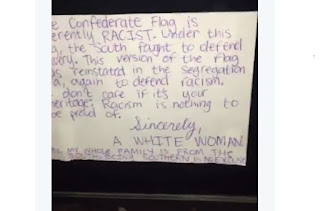 e Confederate Flag is
erently RACIST. Under this
g, the South fought to defend
very. This version of the flag
as reinstated in the segregation
a, again to defend racism.
don't care if its your
eritage; Racism is nothing to
be proud of.
Sincerely,
A WHITE WOMAN
MY WHOLE FAMILY IS FROM THE
SOUTHERN IS NO EXCUSE